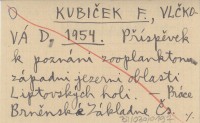 KUBÍČEK F., VLČKO-
VÁ D., 1954. Příspěvek
k poznání zooplanktonu
západní jezerní oblasti
Liptovských holí. — Práce
Brněnské Základne Čs.